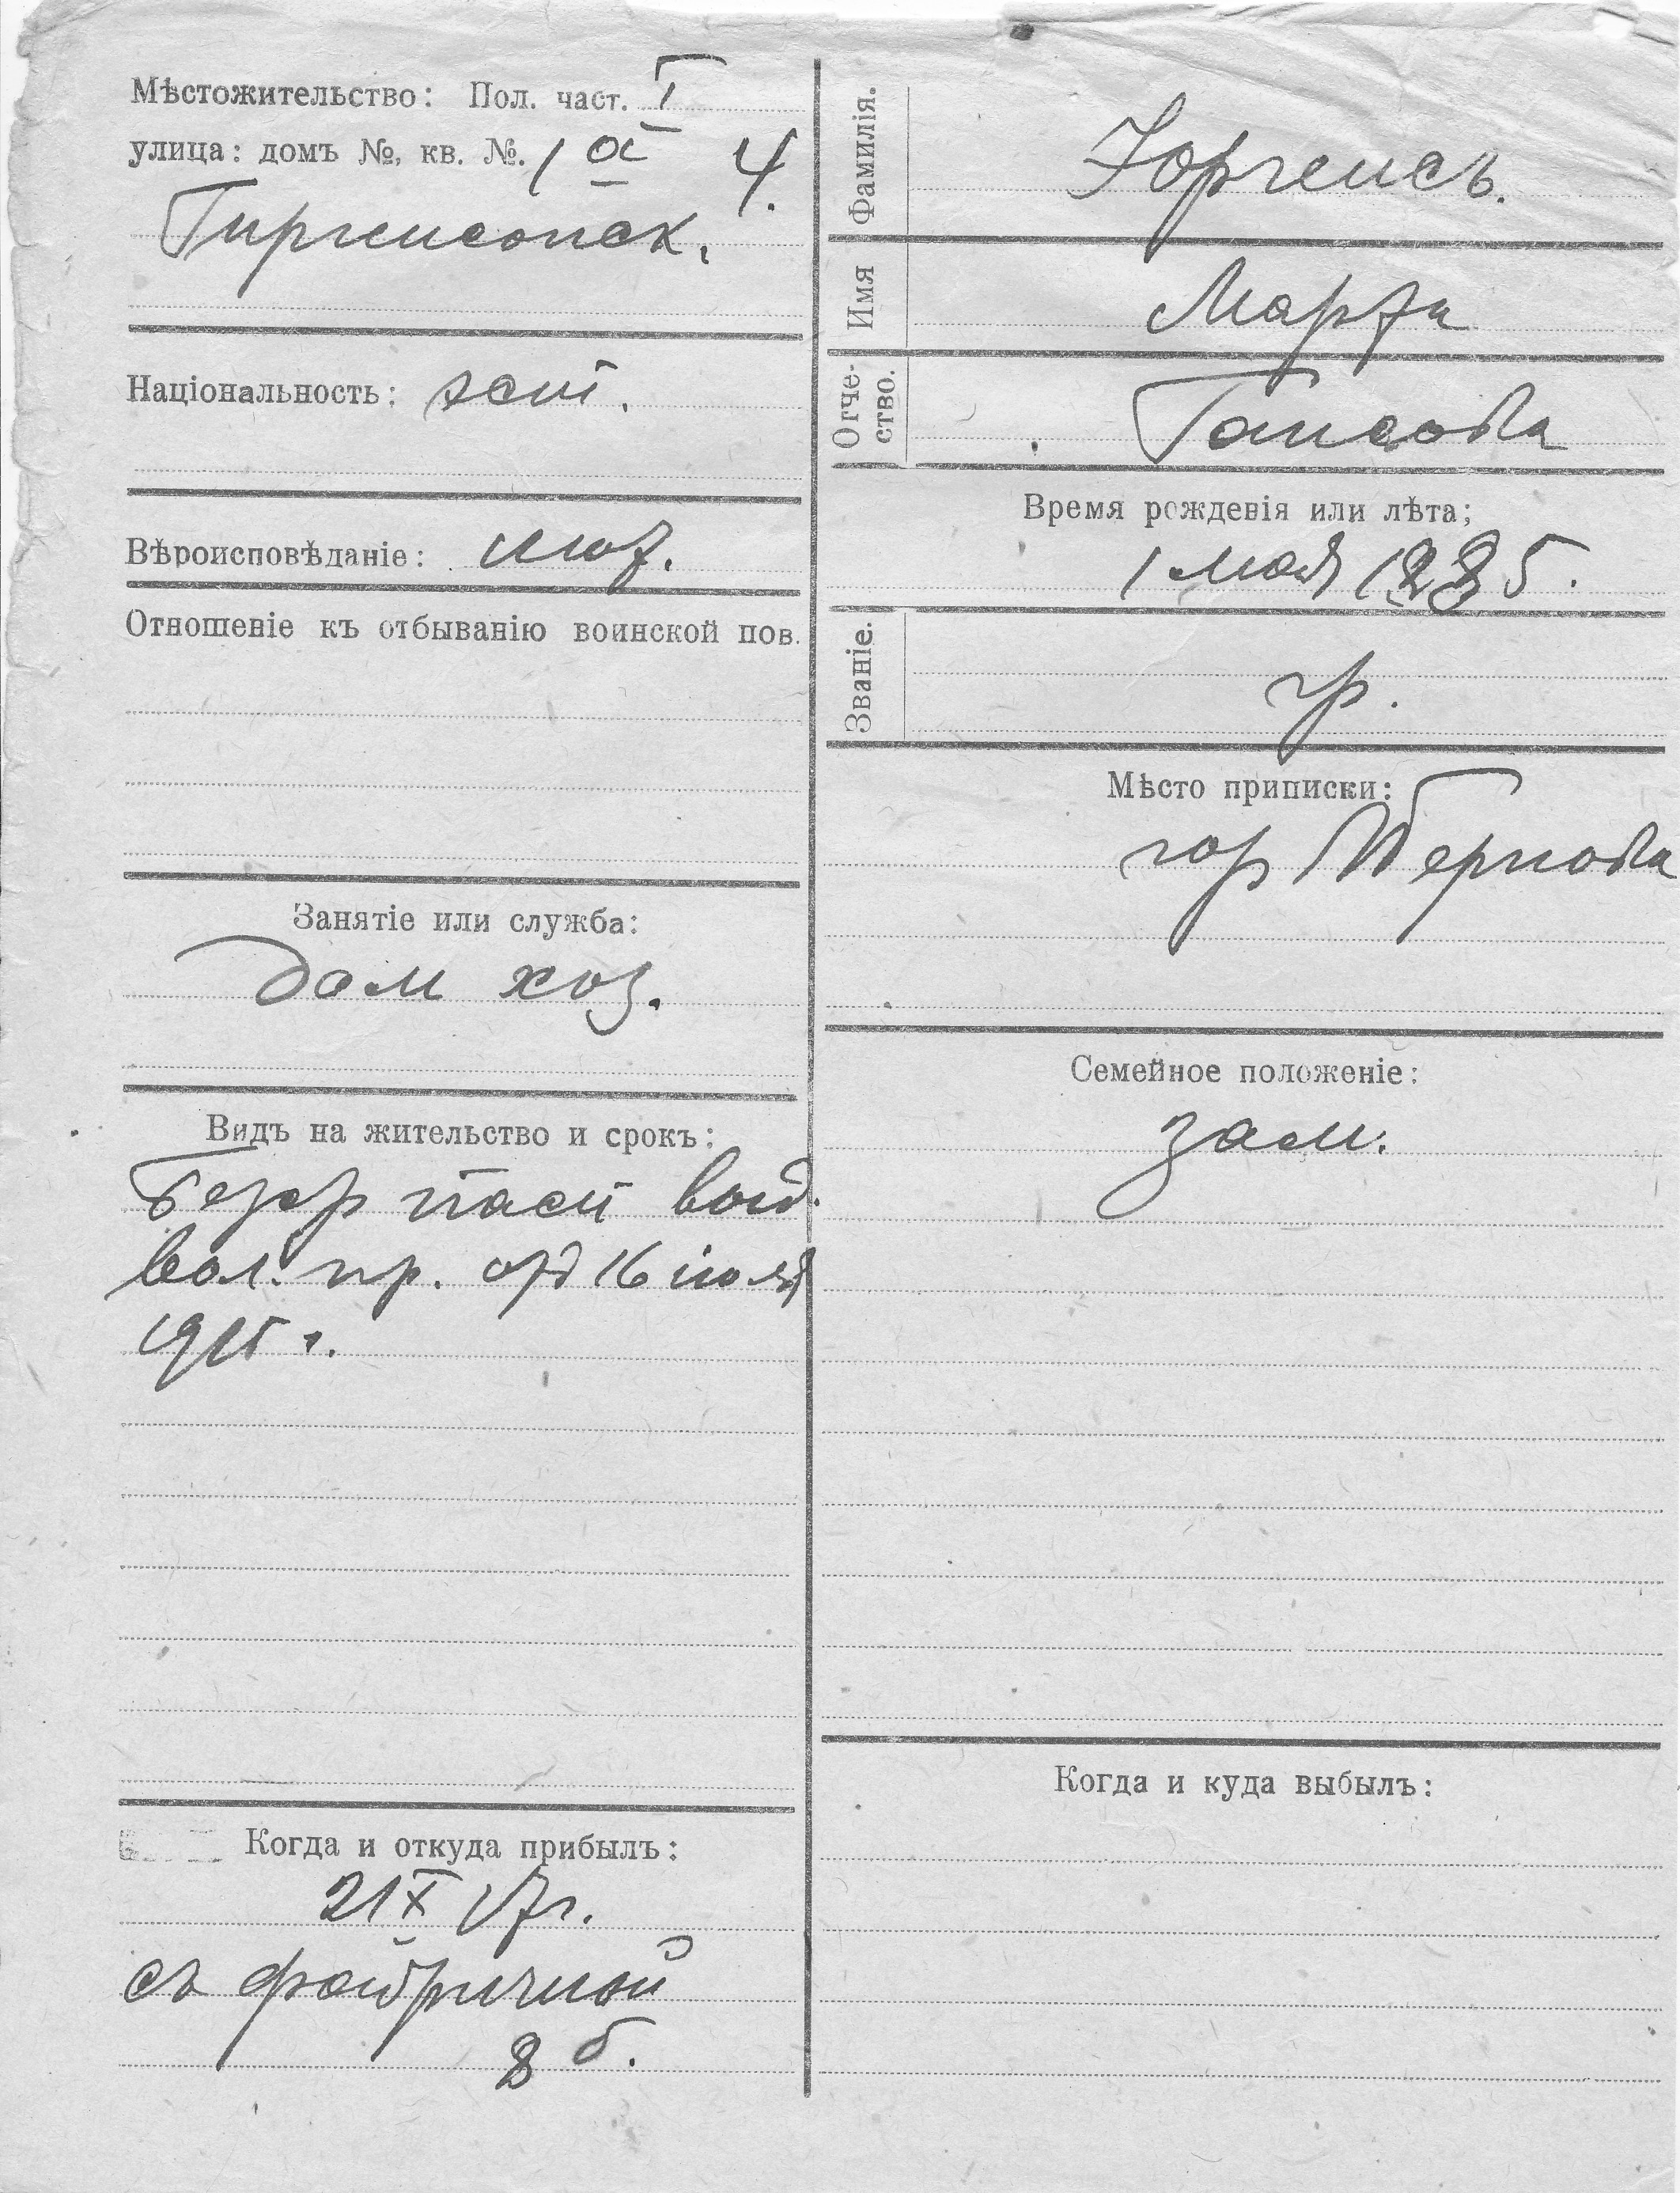 Мѣстожительство: Пол. част. I
улица: домъ №, кв. №. 1 а 4.
Гиргенсонск.
Національность: эст.
Вѣроисповѣданіе: лют.
Отношеніе къ отбыванію воинской пов.
Занятіе или служба:
дом хоз.
Видъ на жительство и срокъ:
Безср пасп выд.
вол. пр. от 16 іюля
1915 г.
Когда и откуда прибылъ:
21 X 17 г.
съ фабричной
8 б.
Фамилія. Юргенсъ.
Имя Марта
Отче-
ство. Гансова
Время рожденія или лѣта;
1 мая 1885.
Званіе. гр.
Мѣсто приписки:
гор
Семейное положеніе:
зам.
Когда и куда выбылъ: